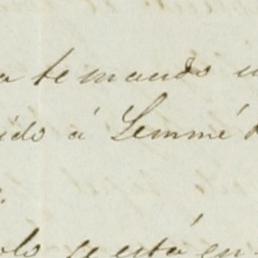 a te mando
ido á Lemmé
olo se está en